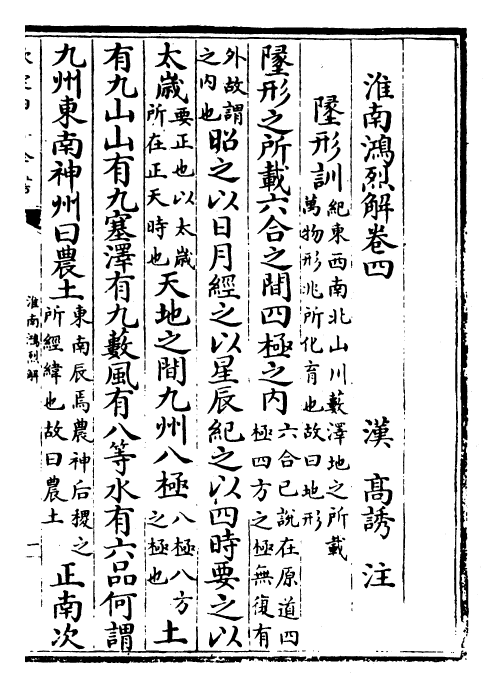 淮南鴻烈解卷四
漢 高誘 注
墬形訓 紀東西南北山川藪澤地之所載萬物形兆所化育也故曰地形
墬形之所載六合之間四極之內 六合已說在原道四極四方之極無復有
外故謂之內也 昭之以日月經之以星辰紀之以四時要之以
太歲 要正也以太歲所在正天時也 天地之間九州八極 八極八方之極也 土
有九山山有九塞澤有九藪風有八等水有六品何謂
九州東南神州曰農土 東南辰爲農神后稷之所經緯也故曰農土 正南次
淮南鴻烈解
一